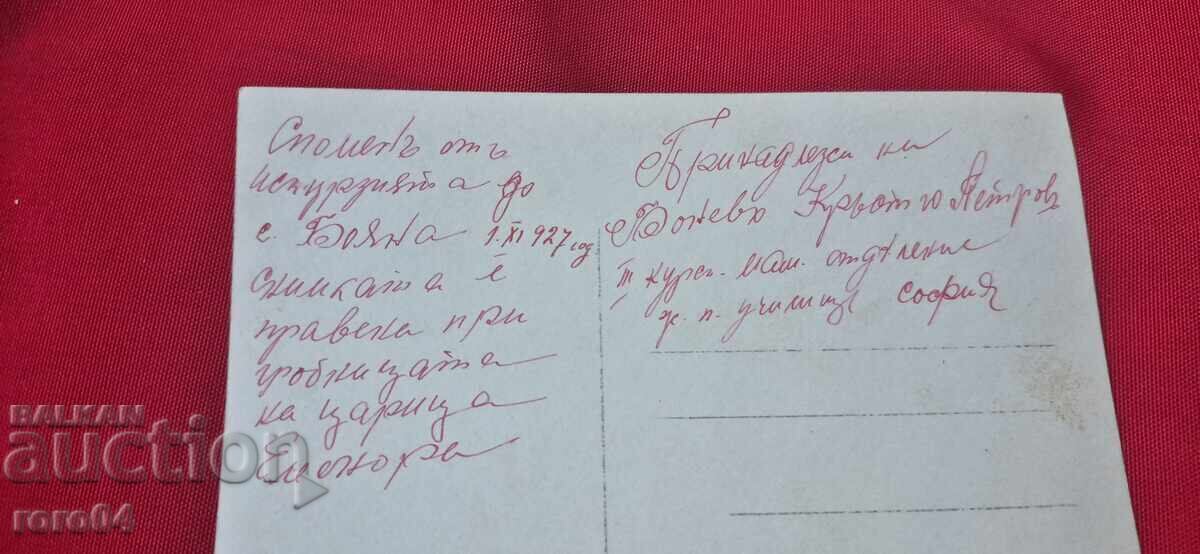 Споменъ отъ
искурзията до
с. Бояна 1.XI 927 год
снимката е
правена при
гробницата
на царица
Елеонора
Принадлежи на
Боневъ Кръстю Петровъ
III курсъ маш. отдѣление
ж. п. училище София
BALKAN
auction
roro04